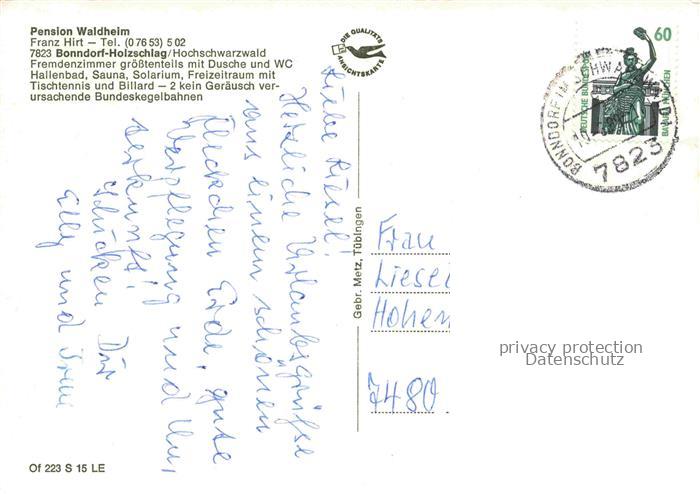 Pension Waldheim
Franz Hirt – Tel. (0 76 53) 5 02
7823 Bonndorf-Holzschlag/Hochschwarzwald
Fremdenzimmer größtenteils mit Dusche und WC
Hallenbad, Sauna, Solarium, Freizeitraum mit
Tischtennis und Billard – 2 kein Geräusch ver-
ursachende Bundeskegelbahnen
DIE QUALITÄTS
ANSICHTSKARTE
60
DEUTSCHE BUNDESPOST
BAVARIA MÜNCHEN
BONNDORF IM SCHWARZWALD
7823
Liebe Liesel!
Herzliche Urlaubsgrüße
aus einem schönen
Fleckchen Erde, gute
Verpflegung und Un,
terkunft!
schicken Dir
Elly und
Gebr. Metz, Tübingen
Frau
Liesel
Hohen
7480
privacy protection
Datenschutz
Of 223 S 15 LE